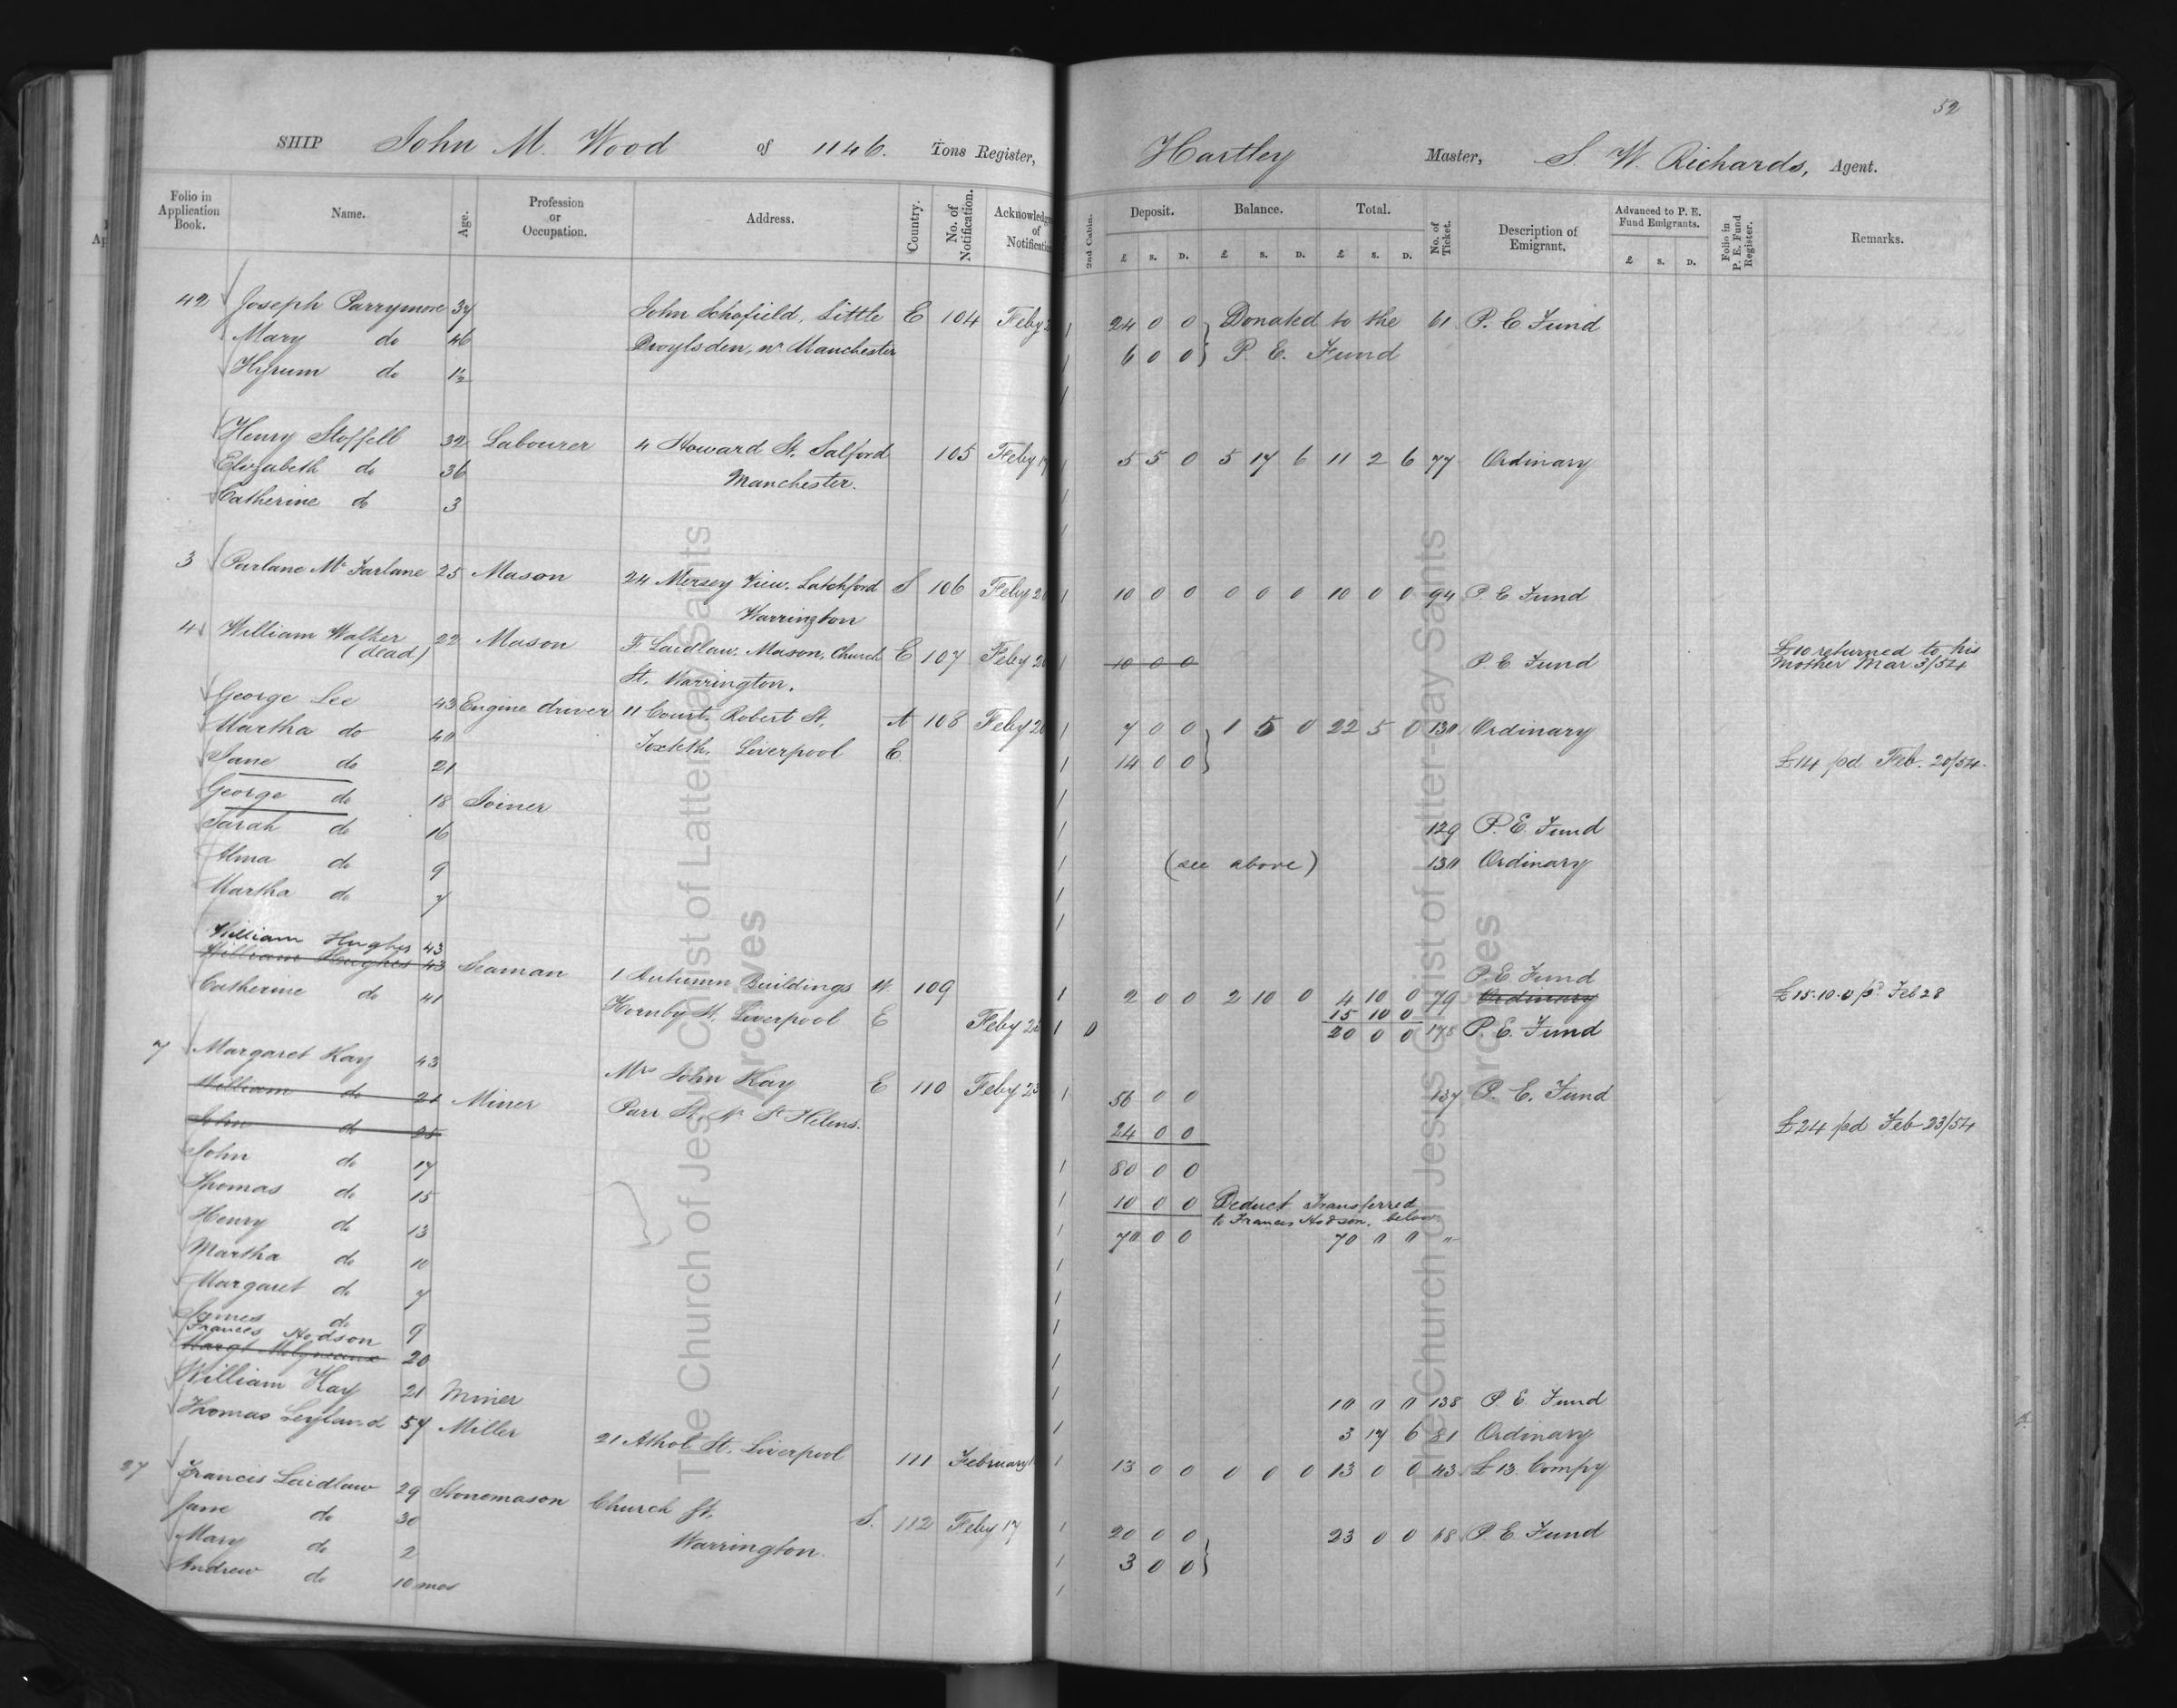 52
SHIP John M. Wood of 1146. Tons Register, Hartley Master, S. W. Richards, Agent.
Folio in Application Book. Name. Age. Profession or Occupation. Address. Country. No. of Notification. Acknowledg of Notification 2nd Cabin. Deposit. Balance. Total. No. of Ticket. Description of Emigrant. Advanced to P. E. Fund Emigrants. Folio in P. E. Fund Register. Remarks.
£ S. D. £ S. D. £ S. D. £ S. D.
42 Joseph Parrymore 37 John Schofield, Little E 104 Feby 24 0 0 Donated to the 61 P. E Fund
Mary do 46 Droylsden, nr Manchester 6 0 0 P. E. Fund
Hyrum do 1½
Henry Stoffell 32 Labourer 4 Howard St. Salford 105 Feby 17 5 5 0 5 17 6 11 2 6 77 Ordinary
Elizabeth do 36 Manchester.
Catherine do 3
3 Parlane Mc Farlane 25 Mason 24 Mersey View, Latchford S 106 Feby 20 10 0 0 0 0 0 10 0 0 94 P. E Fund
Warrington
4 William Walker 22 Mason F Laidlaw. Mason, Church E 107 Feby 20 10 0 0 P. E. Fund £10 returned to his
(dead) St. Warrington. Mother Mar 3/54
George Lee 43 Engine driver 11 Court, Robert St, A 108 Feby 20 7 0 0 1 5 0 22 5 0 130 Ordinary
Martha do 40 Toxteth, Liverpool E 14 0 0 £14 pd Feb. 20/54.
Jane do 21
George do 18 Joiner
Sarah do 16 129 P. E. Fund
Alma do 9 (see above) 130 Ordinary
Martha do 7
William Hughes 43
William Hughes 43 Seaman 1 Autumn Buildings W 109 P. E Fund
Catherine do 41 Hornby St. Liverpool E 2 0 0 2 10 0 4 10 0 79 Ordinary £15.10.0 pd Feb 28
15 10 0
Feby 28 20 0 0 178 P. E. Fund
7 Margaret Kay 43 Mrs John Kay E 110 Feby 23 56 0 0 137 P. E. Fund
William do 21 Miner Parr St. Nr St Helens. 24 0 0 £24 pd Feb 23/54
John do 25
John do 17 80 0 0
Thomas do 15 10 0 0 Deduct Transferred
to Frances Hodson, below
Henry do 13 70 0 0 70 0 0 "
Martha do 10
Margaret do 7
James do 9
Frances Hodson
Margt Molyneaux 20
William Kay 21 Miner 10 0 0 138 P. E Fund
Thomas Leyland 57 Miller 21 Athol St. Liverpool 111 February 3 17 6 81 Ordinary
13 0 0 0 0 0 13 0 0 43 £13. Compy
27 Francis Laidlaw 29 Stonemason Church St, S. 112 Feby 17 20 0 0 23 0 0 68 P. E Fund
Jane do 30 Warrington. 3 0 0
Mary do 2
Andrew do 10 mos
The Church of Jesus Christ of Latter-day Saints
Archives
The Church of Jesus Christ of Latter-day Saints
Archives